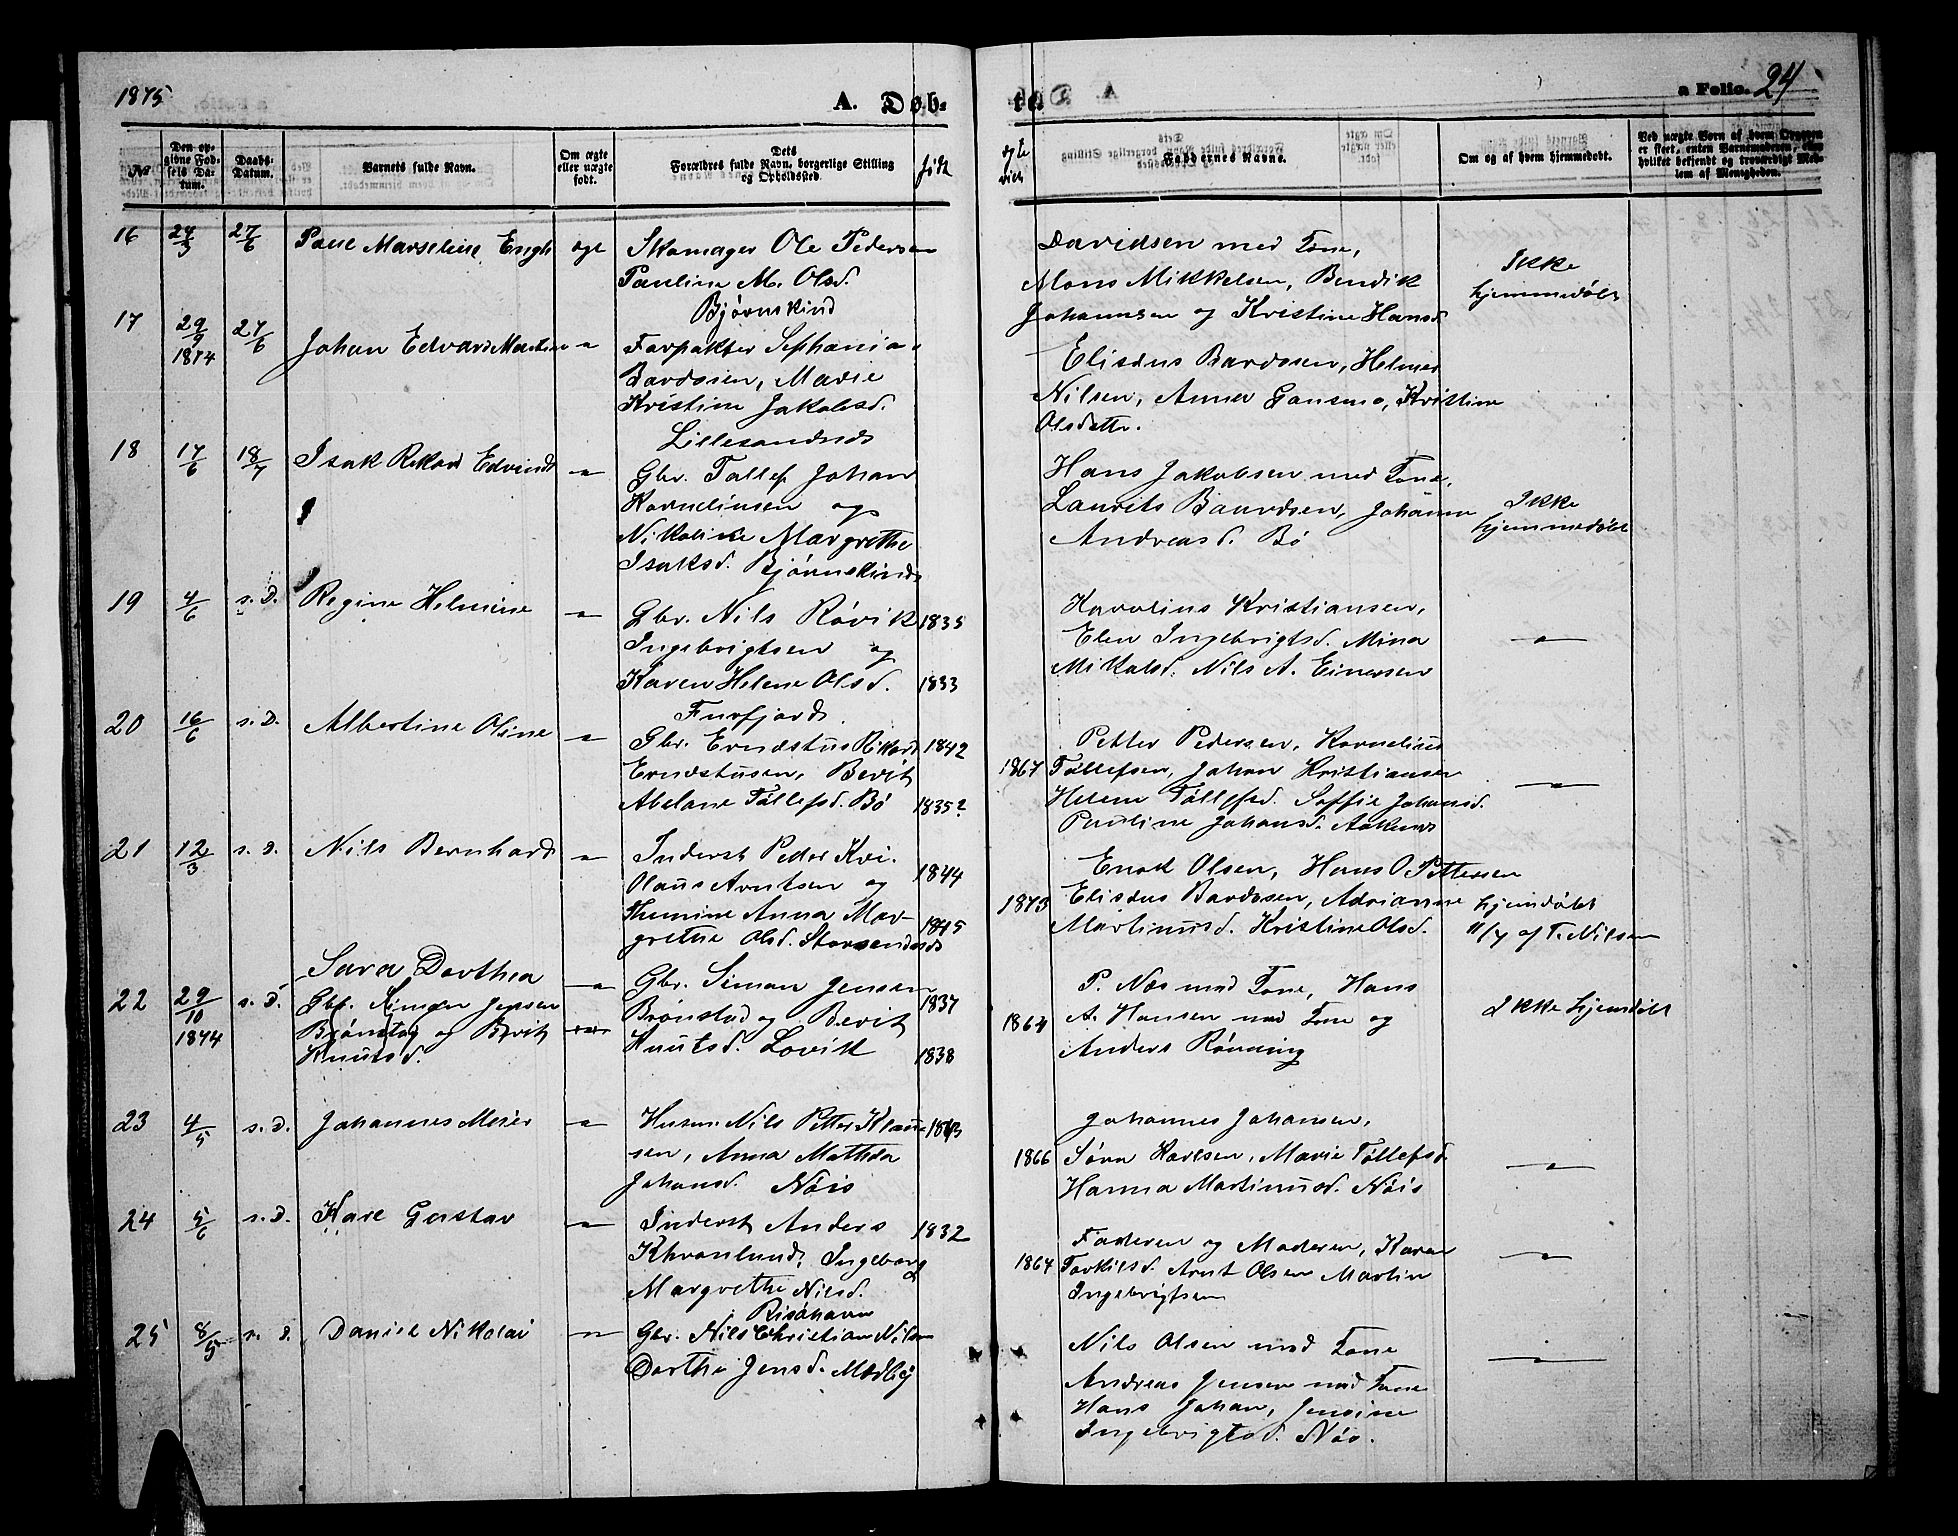 1875
A. Døb-
te.
a Folio. 24
No
Den op-
givne Fød-
sels Da-
tum.
Daabs-
Datum.
Barnets fulde Navn.
Om ægte
eller uægte
født.
Dets
Forældres fulde Navn, borgerlige Stilling
og Opholdssted.
født
Faddernes Navne.
Om og af hvem hjemmedøbt.
Ved uægte Børn af hvem Opgaven
er skeet, enten Barnemoderen, eller
hvilket bekjendt og troværdigt Med-
lem af Menigheden.
16 24/3 27/6 Paul Marselius Engli ægt Skomager Ole Pedersen
Pauline M. Olsd.
Bjørnskind
Davidsen med Kone,
Mons Mikkelsen, Bendik
Johannsen og Kristine Hansd.
Ikke
hjemmedøbt
17 29/9 1874 27/6 Johan Edvard Martin – Forpakter Sephanias
Bardosen, Marie
Kristine Jakobsd.
Lillesandnds
Elisæus Bardosen, Helmer
Nilsen, Anna Gansmo, Kristine
Olsdatter.
18 17/6 18/7 Isak Rikard Edvind – Gbr. Tollef Johan
Kornelinsen og
Nikoline Margrethe
Isaksd. Bjørnskind
Hans Jakobsen med Kone,
Laurits Baardsen, Johanna
Andreasd. Bø
Ikke
hjemmedøbt
19 4/6 s. D. Regine Helmine – Gbr. Nils Røvik 1835
Ingebrigtsen og
Karen Helene Olsd. 1833
Furfjord.
Karolius Kristiansen,
Elen Ingebrigtsd. Mina
Mikalsd. Nils A. Einersen
–
20 16/6 s. D. Albertine Oline – Gbr. Erndstus Rikard 1842
Erndstusen, Berit
Abelone Tollefsd. Bø 1835?
1867
Petter Pedersen, Kornelius
Tollefsen, Johan Kristiansen
Helene Tollefsd. Soffie Johansd.
Pauline Johansd.
–
21 12/3 s. D. Nils Bernhard – Inderst Peder Kri. 1844
Olaus Arntsen og
Anna Mar- 1845
grethe Olsd. Storsandnds
1873
Enok Olsen, Hans O Pettersen
Elisæus Bardosen, Adrianne
Martinusd. Kristine Olsd.
hjemdøbt
11/7 af T. Nilsen
22 29/10 1874 s. D. Sara Dorthea
Gbr. Simon Jensen
Brønstad og Berit
Knutsd.
– Gbr. Simon Jensen 1837
Brønstad og Berit
Knutsd. Lovik 1838
1864
P. Næs med Kone, Hans
A. Hansen med Kone og
Anders Rønning
Ikke hjemdøbt
23 4/5 s. D. Johannes Meier – Husm. Nils Petter Klau- 1843
sen, Anna Mathea
Johansd. Nøis
1866
Johannes Johansen,
Søren Karlsen, Marie Tollefsd.
Hanna Martinusd. Nøis
–
24 5/6 s. D. Karl Gustav – Inderst Anders 1832
Khvanlund, Ingeborg
Margrethe Nilsd.
Risøhavn
1864
Faderen og Moderen, Karen
Torkilsd. Arnt Olsen Martin
Ingebrigtsen
–
25 8/5 s. D. Daniel Nikolai – Gbr. Nils Christian Nilsen
Dorthe Jensd. Medby
Nils Olsen med Kone
Andreas Jensen med Kone
Hans Johan, Jensine
Ingebrigtsd. Nøs.
–